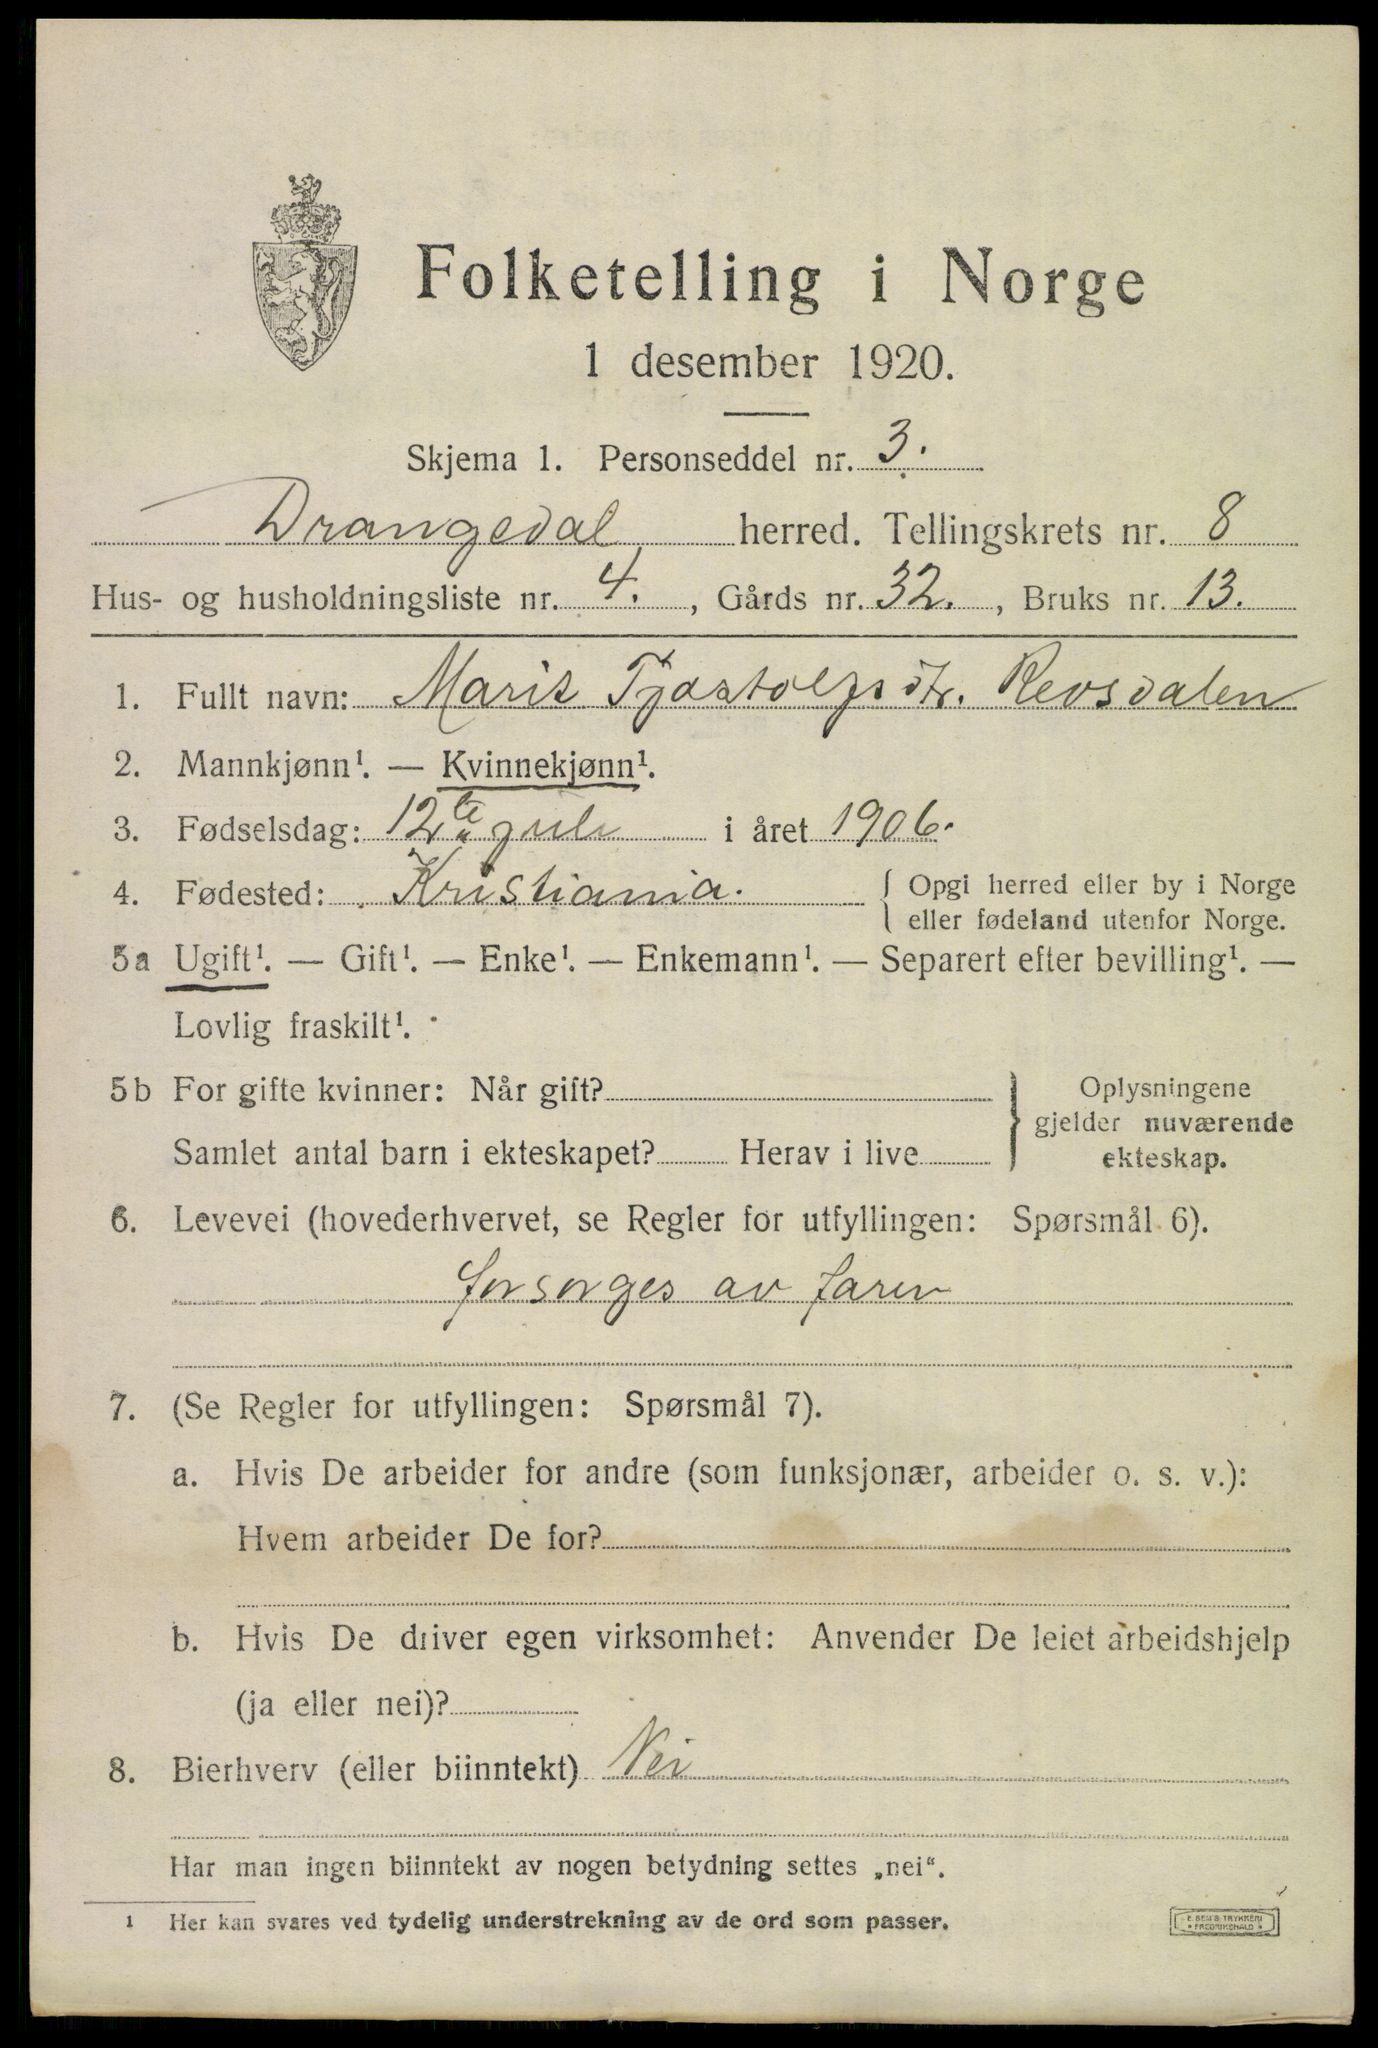 Folketelling i Norge
1 desember 1920.
Skjema 1. Personseddel nr. 3.
Drangedal herred. Tellingskrets nr. 8
Hus- og husholdningsliste nr. 4., Gårds nr. 32., Bruks nr. 13.
1. Fullt navn: Marit Tjøstolfsdtr. Revsdalen
2. Mannkjønn¹. — Kvinnekjønn¹.
3. Fødselsdag: 12te juli i året 1906.
4. Fødested: Kristiania. { Opgi herred eller by i Norge
eller fødeland utenfor Norge.
5a Ugift¹. — Gift¹. — Enke¹. — Enkemann¹. — Separert efter bevilling¹. —
Lovlig fraskilt¹.
5b For gifte kvinner: Når gift?
Samlet antal barn i ekteskapet? Herav i live
} Oplysningene
gjelder nuværende
ekteskap.
6. Levevei (hovederhvervet, se Regler for utfyllingen: Spørsmål 6).
forsorges av faren
7. (Se Regler for utfyllingen: Spørsmål 7).
a. Hvis De arbeider for andre (som funksjonær, arbeider o. s. v.):
Hvem arbeider De for?
b. Hvis De driver egen virksomhet: Anvender De leiet arbeidshjelp
(ja eller nei)?
8. Bierhverv (eller biinntekt) Nei
Har man ingen biinntekt av nogen betydning settes „nei“.
1 Her kan svares ved tydelig understrekning av de ord som passer.
E. SEM'S TRYKKERI
FREDRIKSHALD